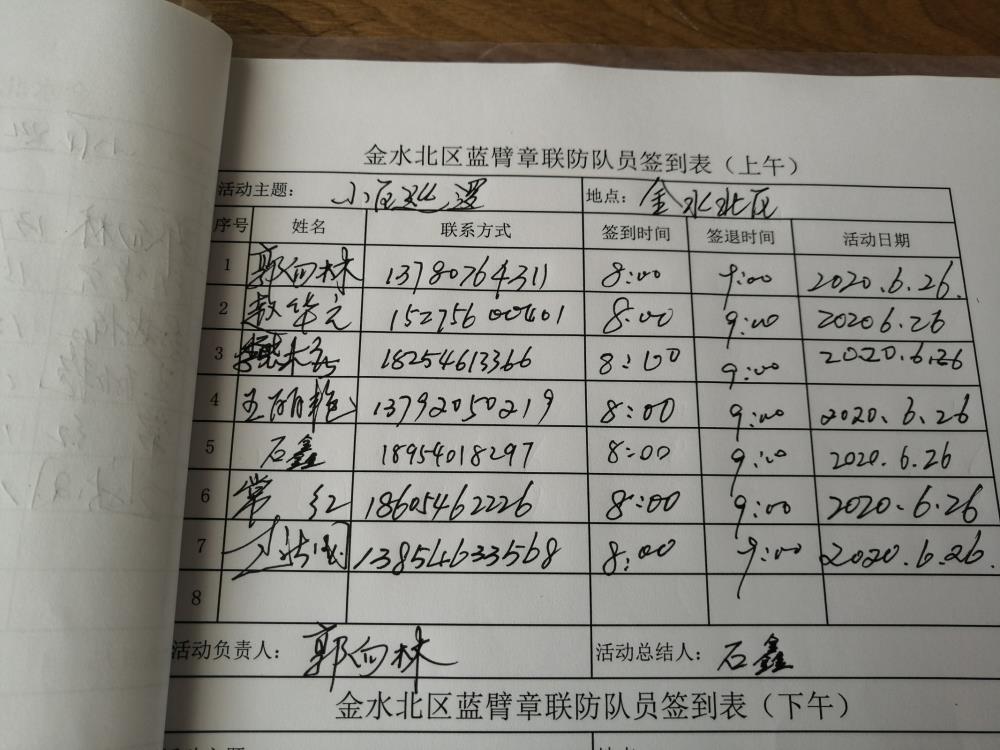 金水北区蓝臂章联防队员签到表（上午）
活动主题： 小区巡逻 地点： 金水北区
序号 姓名 联系方式 签到时间 签退时间 活动日期
1 郭向林 13780764311 8:00 9:00 2020.6.26.
2 赵华元 15275600401 8:00 9:00 2020 6.26
3 18254613366 8:00 9:00 2020.6.26
4 王丽艳 13792050219 8:00 9:00 2020.6.26
5 石鑫 18954018297 8:00 9:00 2020.6.26
6 常红 18605462226 8:00 9:00 2020.6.26
7 13854633568 8:00 9:00 2020.6.26.
8
活动负责人： 郭向林 活动总结人： 石鑫
金水北区蓝臂章联防队员签到表（下午）